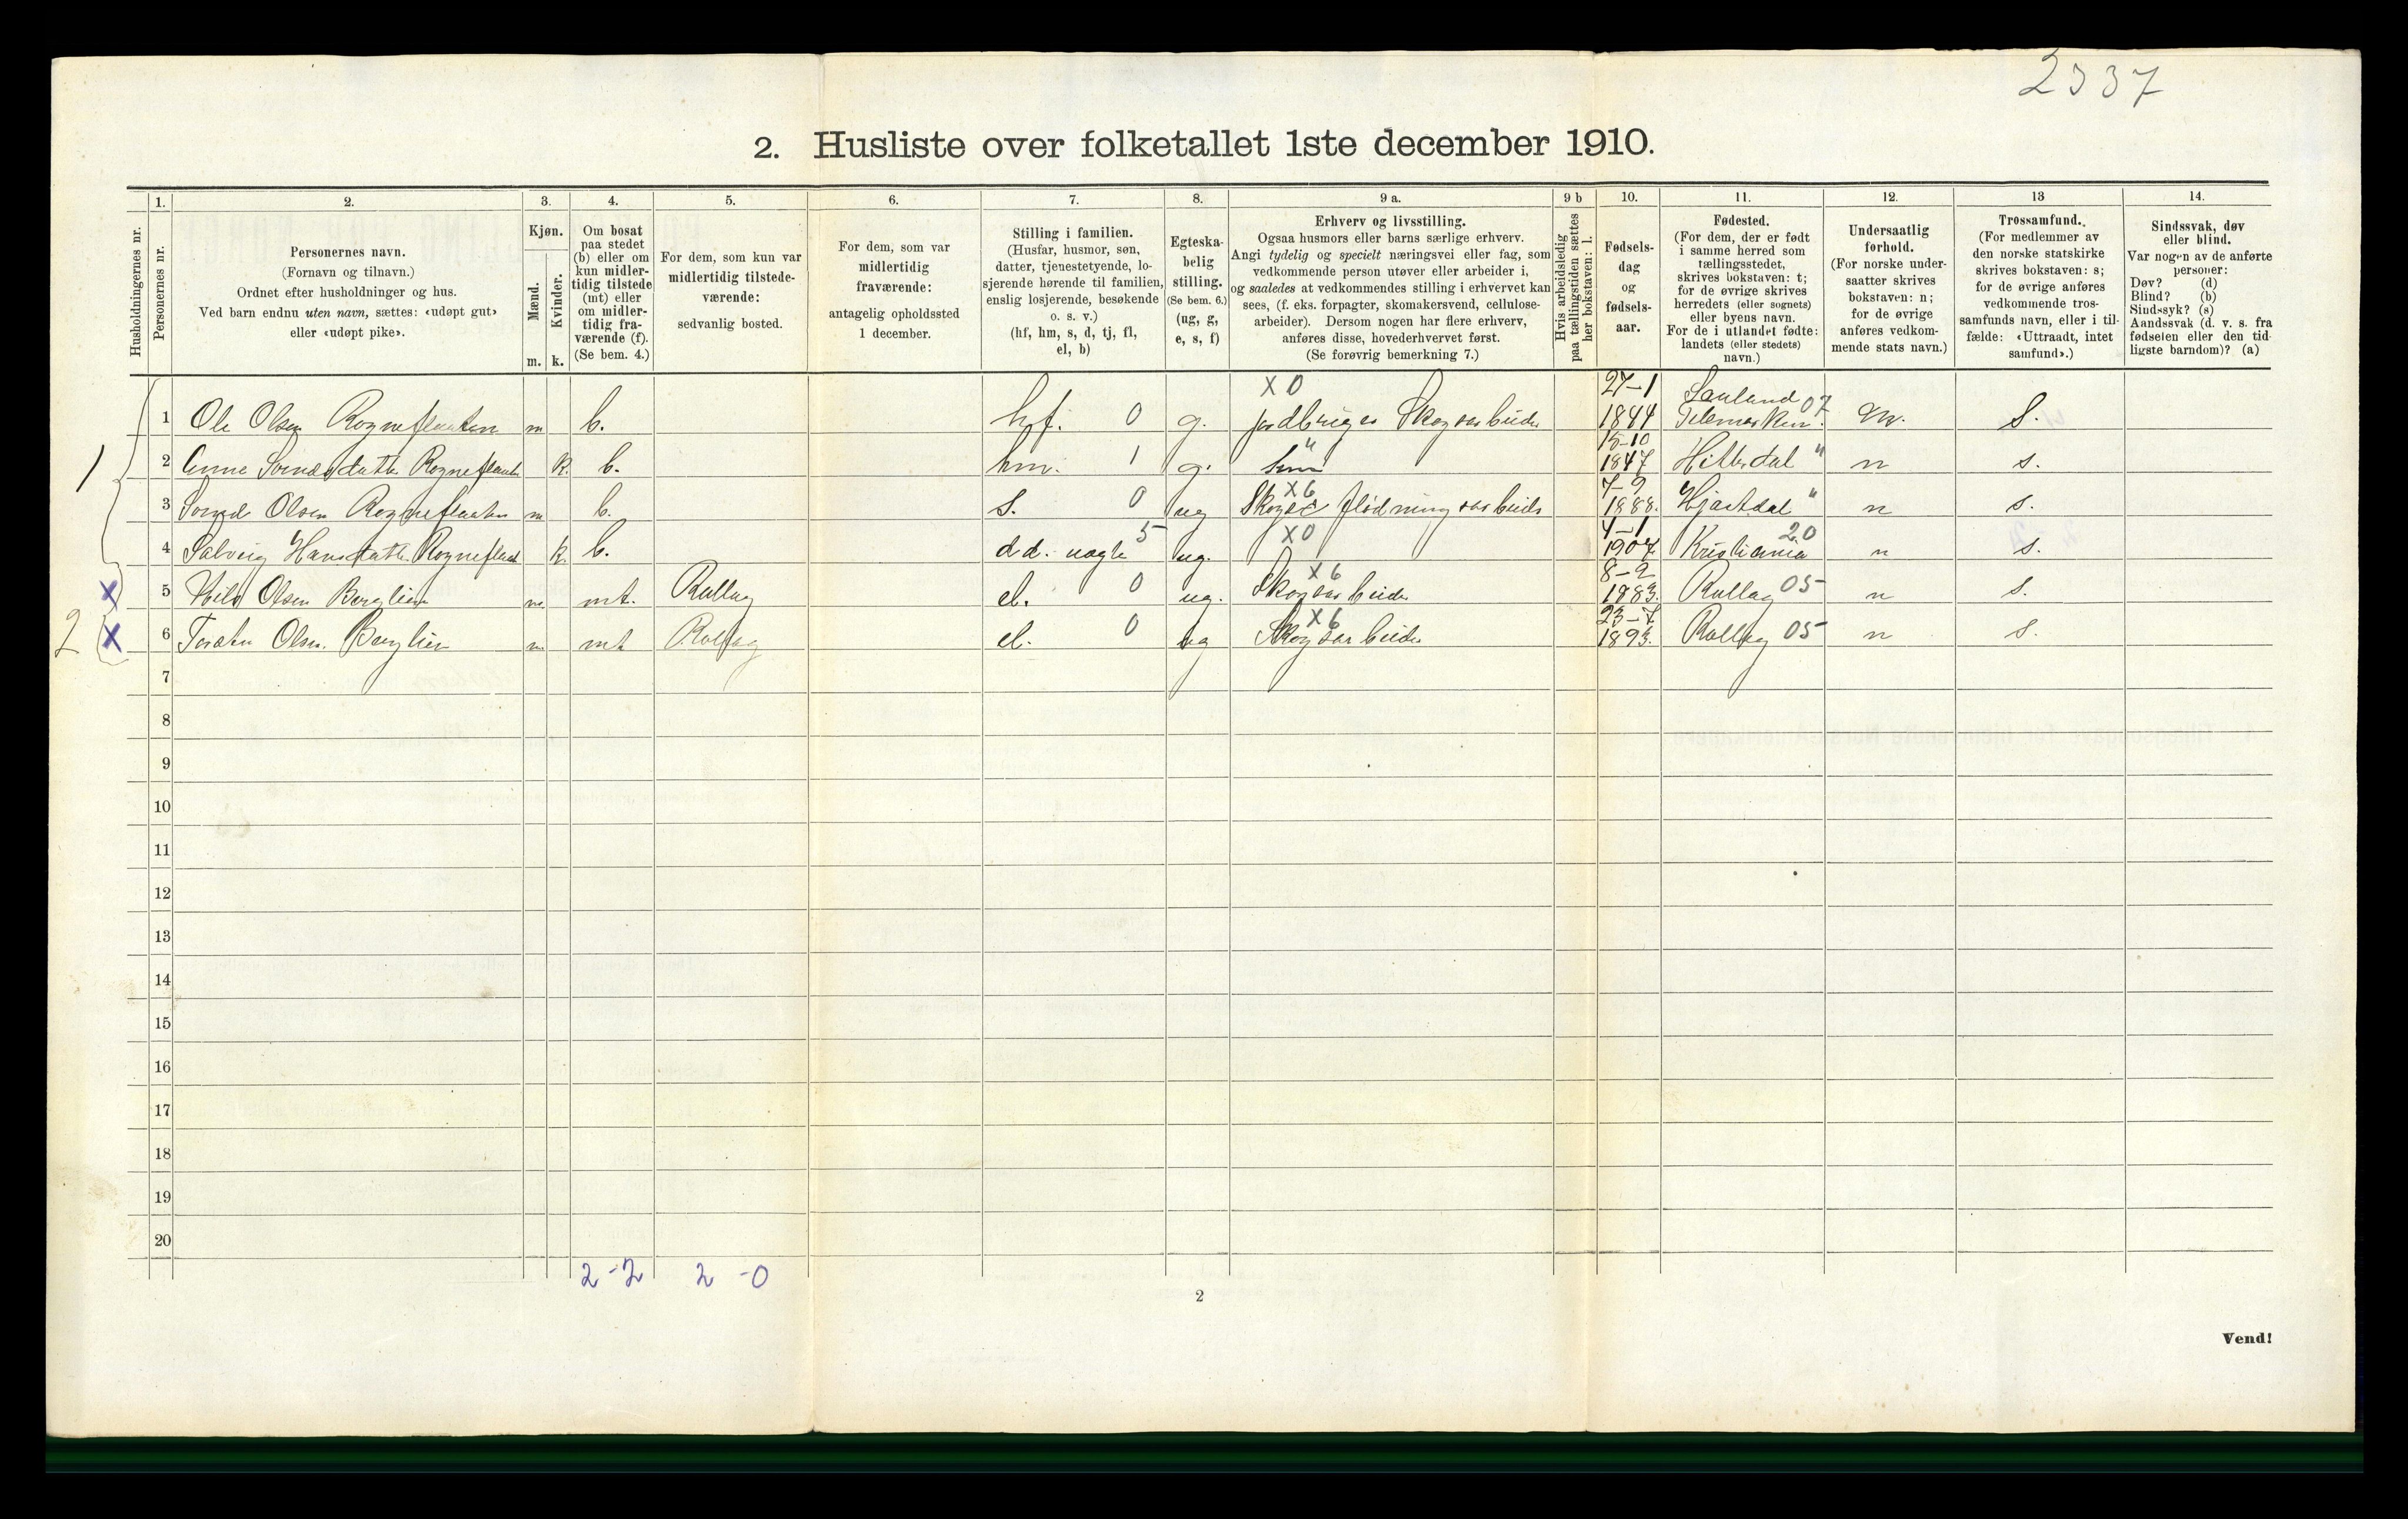 2337
2. Husliste over folketallet 1ste december 1910.
Husholdningernes nr.
1.
Personernes nr.
2.
Personernes navn.
(Fornavn og tilnavn.)
Ordnet efter husholdninger og hus.
Ved barn endnu uten navn, sættes: «udøpt gut»
eller «udøpt pike».
3.
Kjøn.
Mænd.
Kvinder.
m. k.
4.
Om bosat
paa stedet
(b) eller om
kun midler-
tidig tilstede
(mt) eller
om midler-
tidig fra-
værende (f).
(Se bem. 4.)
5.
For dem, som kun var
midlertidig tilstede-
værende:
sedvanlig bosted.
6.
For dem, som var
midlertidig
fraværende:
antagelig opholdssted
1 december.
7.
Stilling i familien.
(Husfar, husmor, søn,
datter, tjenestetyende, lo-
sjerende hørende til familien,
enslig losjerende, besøkende
o. s. v.)
(hf, hm, s, d, tj, fl,
el, b)
8.
Egteska-
belig
stilling.
(Se bem. 6.)
(ug, g,
e, s, f)
9 a.
Erhverv og livsstilling.
Ogsaa husmors eller barns særlige erhverv.
Angi tydelig og specielt næringsvei eller fag, som
vedkommende person utøver eller arbeider i,
og saaledes at vedkommendes stilling i erhvervet kan
sees, (f. eks. forpagter, skomakersvend, cellulose-
arbeider). Dersom nogen har flere erhverv,
anføres disse, hovederhvervet først.
(Se forøvrig bemerkning 7.)
9 b
Hvis arbeidsledig
paa tællingstiden sættes
her bokstaven: l.
10.
Fødsels-
dag
og
fødsels-
aar.
11.
Fødested.
(For dem, der er født
i samme herred som
tællingsstedet,
skrives bokstaven: t;
for de øvrige skrives
herredets (eller sognets)
eller byens navn.
For de i utlandet fødte:
landets (eller stedets)
navn.)
12.
Undersaatlig
forhold.
(For norske under-
saatter skrives
bokstaven: n;
for de øvrige
anføres vedkom-
mende stats navn.)
13
Trossamfund.
(For medlemmer av
den norske statskirke
skrives bokstaven: s;
for de øvrige anføres
vedkommende tros-
samfunds navn, eller i til-
fælde: «Uttraadt, intet
samfund».)
14.
Sindssvak, døv
eller blind.
Var nogen av de anførte
personer:
Døv? (d)
Blind? (b)
Sindssyk? (s)
Aandssvak (d. v. s. fra
fødselen eller den tid-
ligste barndom)? (a)
X 0 27-1 Sauland 07
1 Ole Olsen Rogneflaaten m b. hf. 0 g. jordbruger Skogsarbeider 1844 Telemarken. n. S.
1 " 18-10
2 Anne k. b. hm. 1 g. hm 1847 Hitterdal " n s.
X6 7-9
3 Svend Olsen Rogneflaaten m b. s. 0 ug 1888. Hjartdal " n s.
5 X0 4-1 20
4 Solveig k. b. d.d. ug. 1907 Kristiania n s.
X6 8-2
X 5 Nils Olsen Berglien m. mt. Rollag el. 0 ug. Skogsarbeider 1883. Rollag 05 n s.
X6 23-7
2 X 6 Torsten Olsen Berglien m. mt Rollag el. 0 ug Skogsarbeider 1893. Rollag 05 n s.
7
8
9
10
11
12
13
14
15
16
17
18
19
20
2-2 2-0
2
Vend!